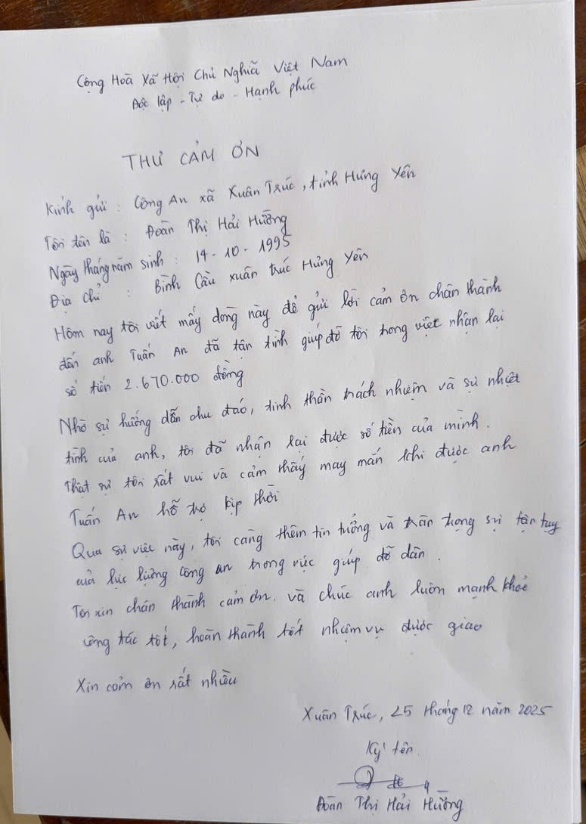 Cộng Hoà Xã Hội Chủ Nghĩa Việt Nam
Độc lập - Tự do - Hạnh phúc
THƯ CẢM ƠN
Kính gửi : Công An xã Xuân Trúc, tỉnh Hưng Yên
Tôi tên là : Đoàn Thị Hải Hường
Ngày tháng năm sinh : 14 - 10 - 1995
Địa chỉ : Bình Cầu xuân trúc Hưng Yên
Hôm nay tôi viết mấy dòng này để gửi lời cảm ơn chân thành
đến anh Tuấn An đã tận tình giúp đỡ tôi trong việt nhận lại
số tiền 2.670.000 đồng
Nhờ sự hướng dẫn chu đáo, tinh thần trách nhiệm và sự nhiệt
tình của anh, tôi đã nhận lại được số tiền của mình.
Thật sự tôi rất vui và cảm thấy may mắn khi được anh
Tuấn An hỗ trợ kịp thời
Qua sự việc này, tôi càng thêm tin tưởng và trân trọng sự tận tuỵ
của lực lượng công an trong việc giúp đỡ dân.
Tôi xin chân thành cảm ơn. và chúc anh luôn mạnh khoẻ
công tác tốt, hoàn thành tốt nhiệm vụ được giao
Xin cảm ơn rất nhiều
Xuân Trúc, 25 tháng 12 năm 2025
Ký tên.
Đoàn Thị Hải Hường